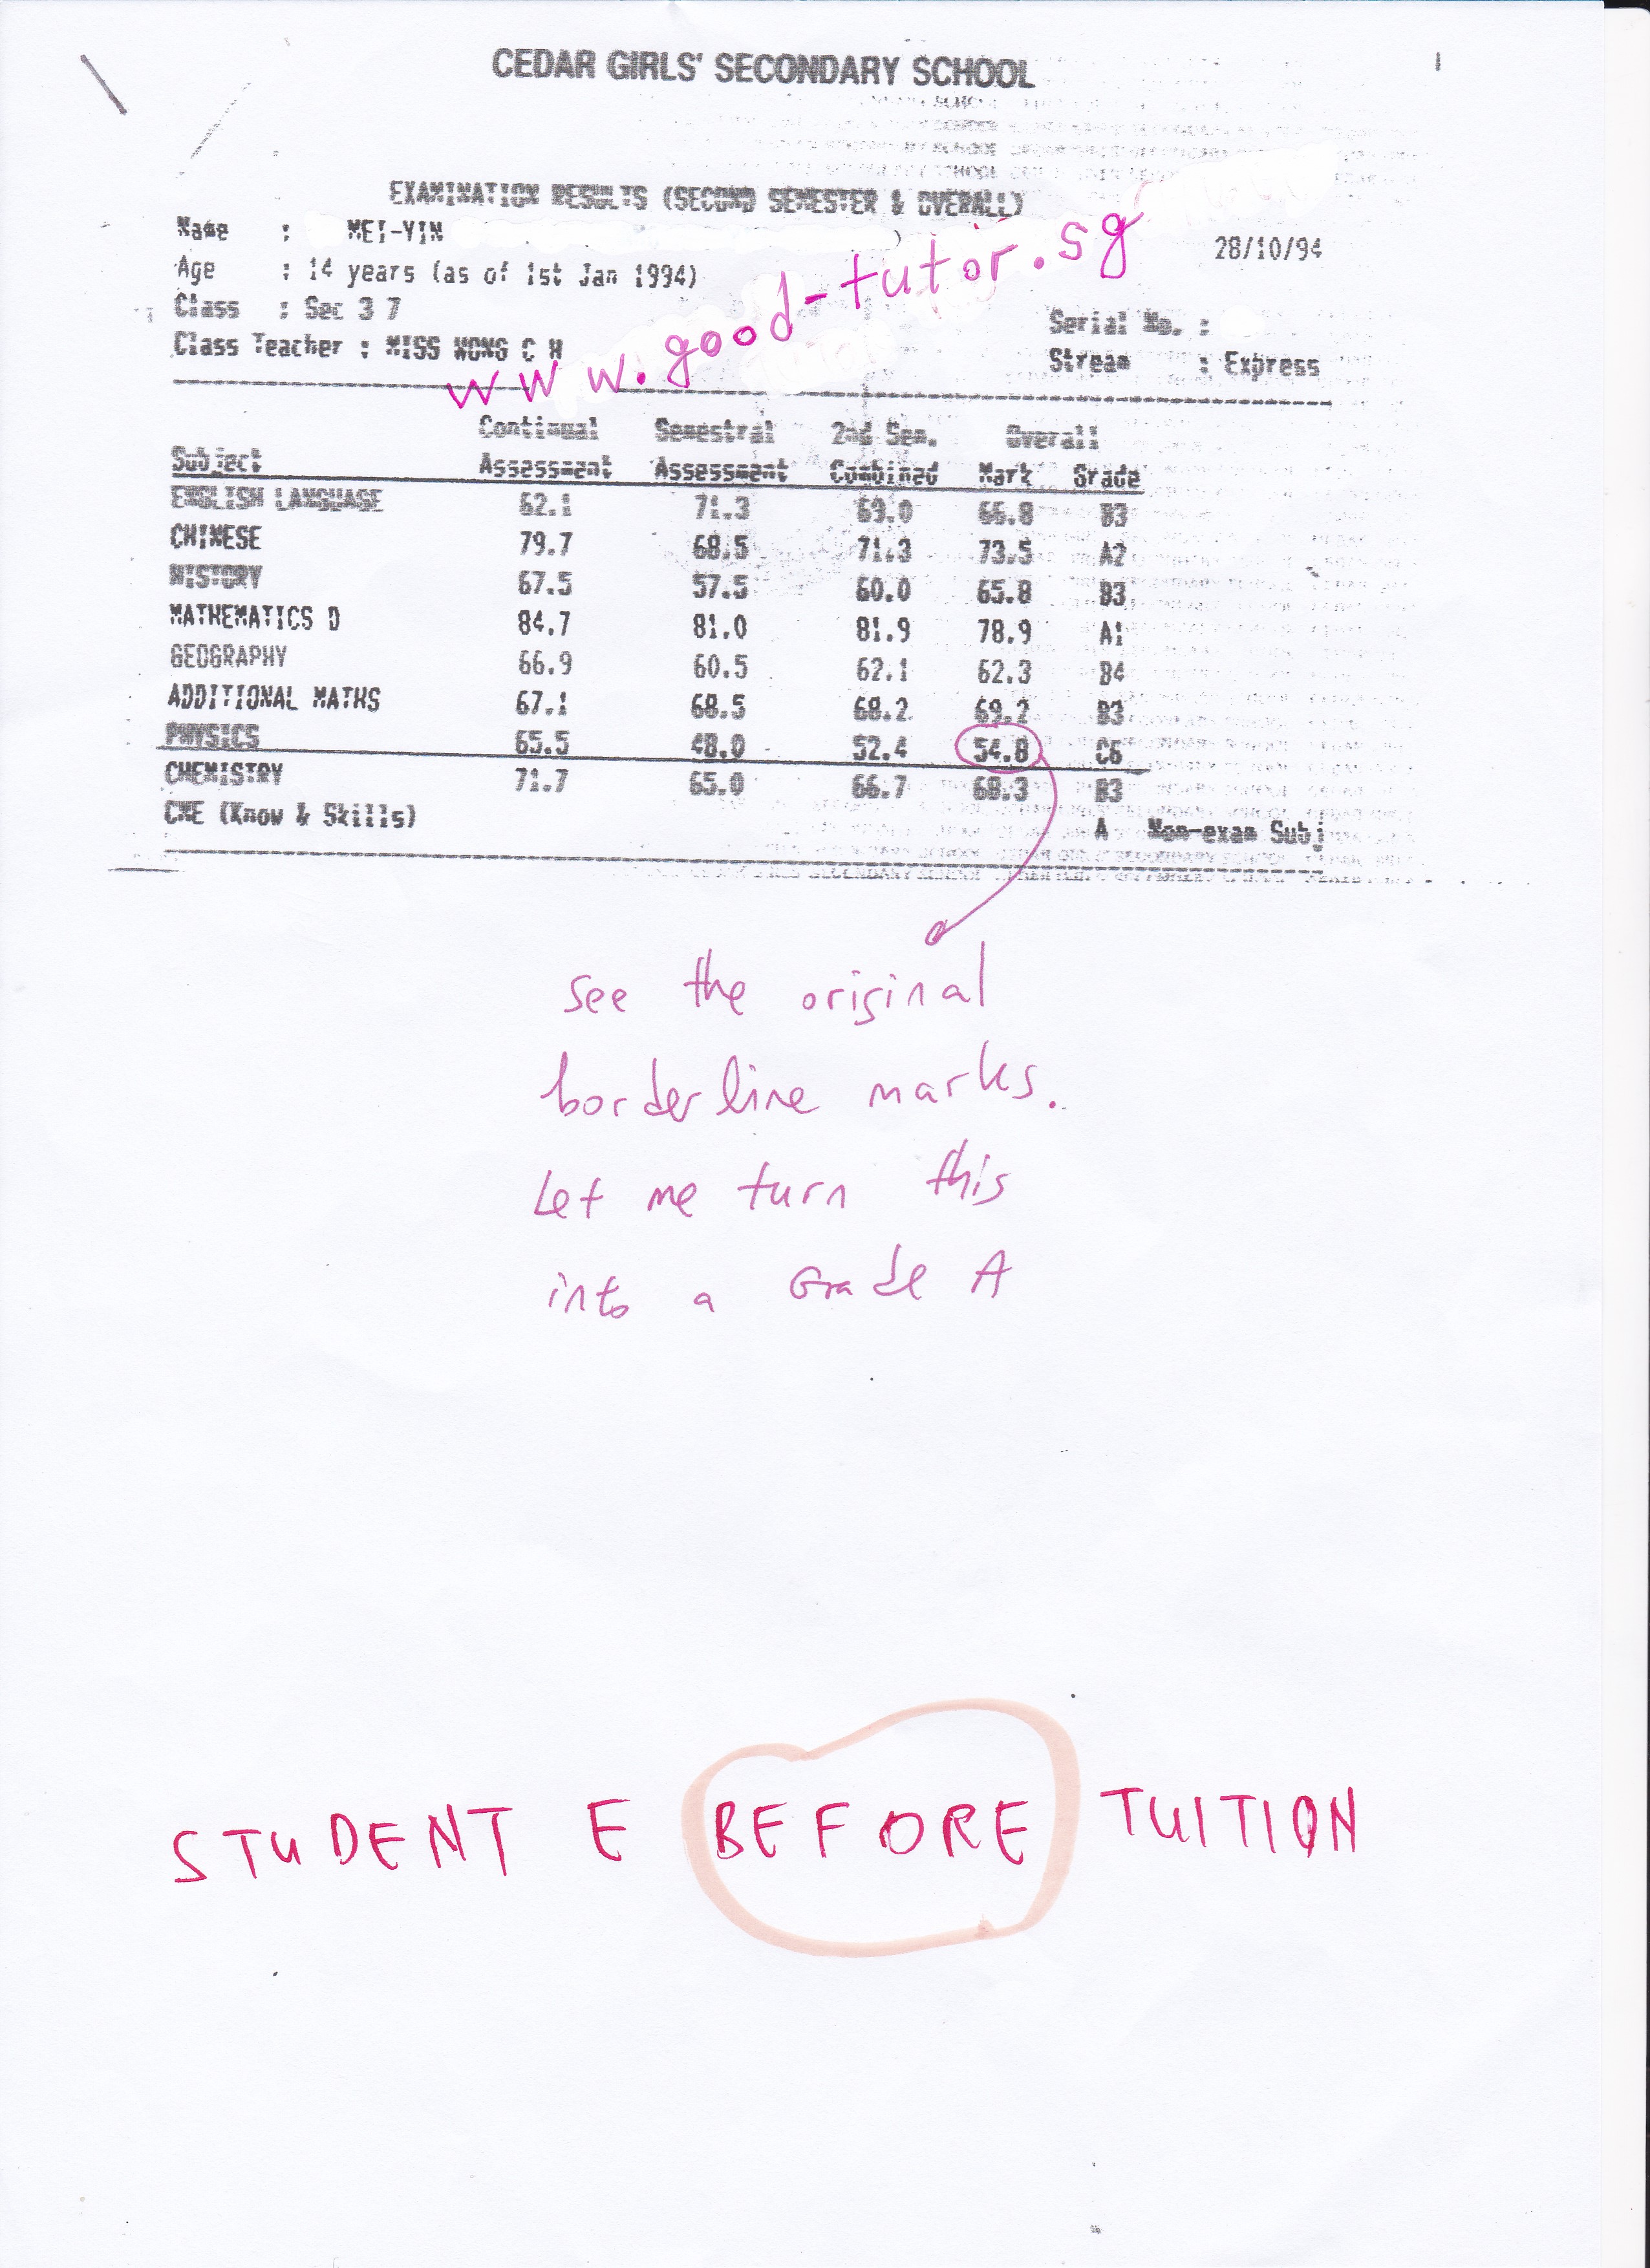 CEDAR GIRLS' SECONDARY SCHOOL
EXAMINATION RESULTS (SECOND SEMESTER & OVERALL)
Name : MEI-YIN )
28/10/94
Age : 14 years (as of 1st Jan 1994)
Class : Sec 3 7
Serial No. :
Class Teacher : MISS WONG C H
Stream : Express
www.good-tutor.sg
Continual Semestral 2nd Sem. Overall
Subject Assessment Assessment Combined Mark Grade
ENGLISH LANGUAGE 62.1 71.3 69.0 66.8 B3
CHINESE 79.7 68.5 71.3 73.5 A2
HISTORY 67.5 57.5 60.0 65.8 B3
MATHEMATICS D 84.7 81.0 81.9 78.9 A1
GEOGRAPHY 66.9 60.5 62.1 62.3 B4
ADDITIONAL MATHS 67.1 68.5 68.2 69.2 B3
PHYSICS 65.5 48.0 52.4 54.8 C6
CHEMISTRY 71.7 65.0 66.7 68.3 B3
CME (Know & Skills) A Non-exam Subj
see the original
borderline marks.
Let me turn this
into a Grade A
STUDENT E BEFORE TUITION